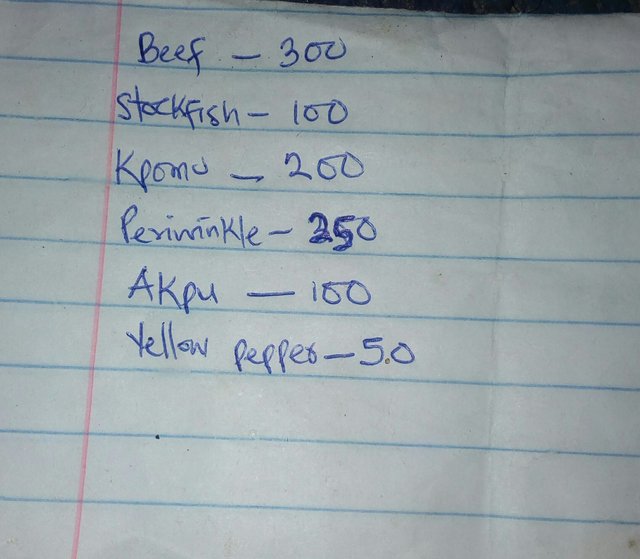 Beef — 300
Stockfish — 100
Kpomo — 200
Periwinkle — 250
Akpu — 100
Yellow pepper — 50